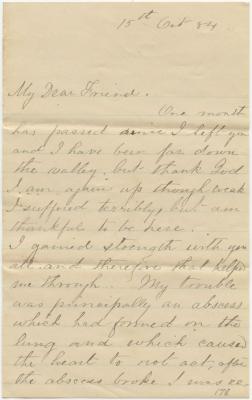 15th Oct 84
My Dear Friend.
One month
has passed since I left you
and I have been far down
the valley, but thank God
I am again up though weak
I suffered terribly, but am
thankful to be here.
I gained strength with you
all and therefore that helped
me through. My trouble
was principally an abscess
which had formed on the
lung and which caused
the heart to not act, after
the abscess broke I was re